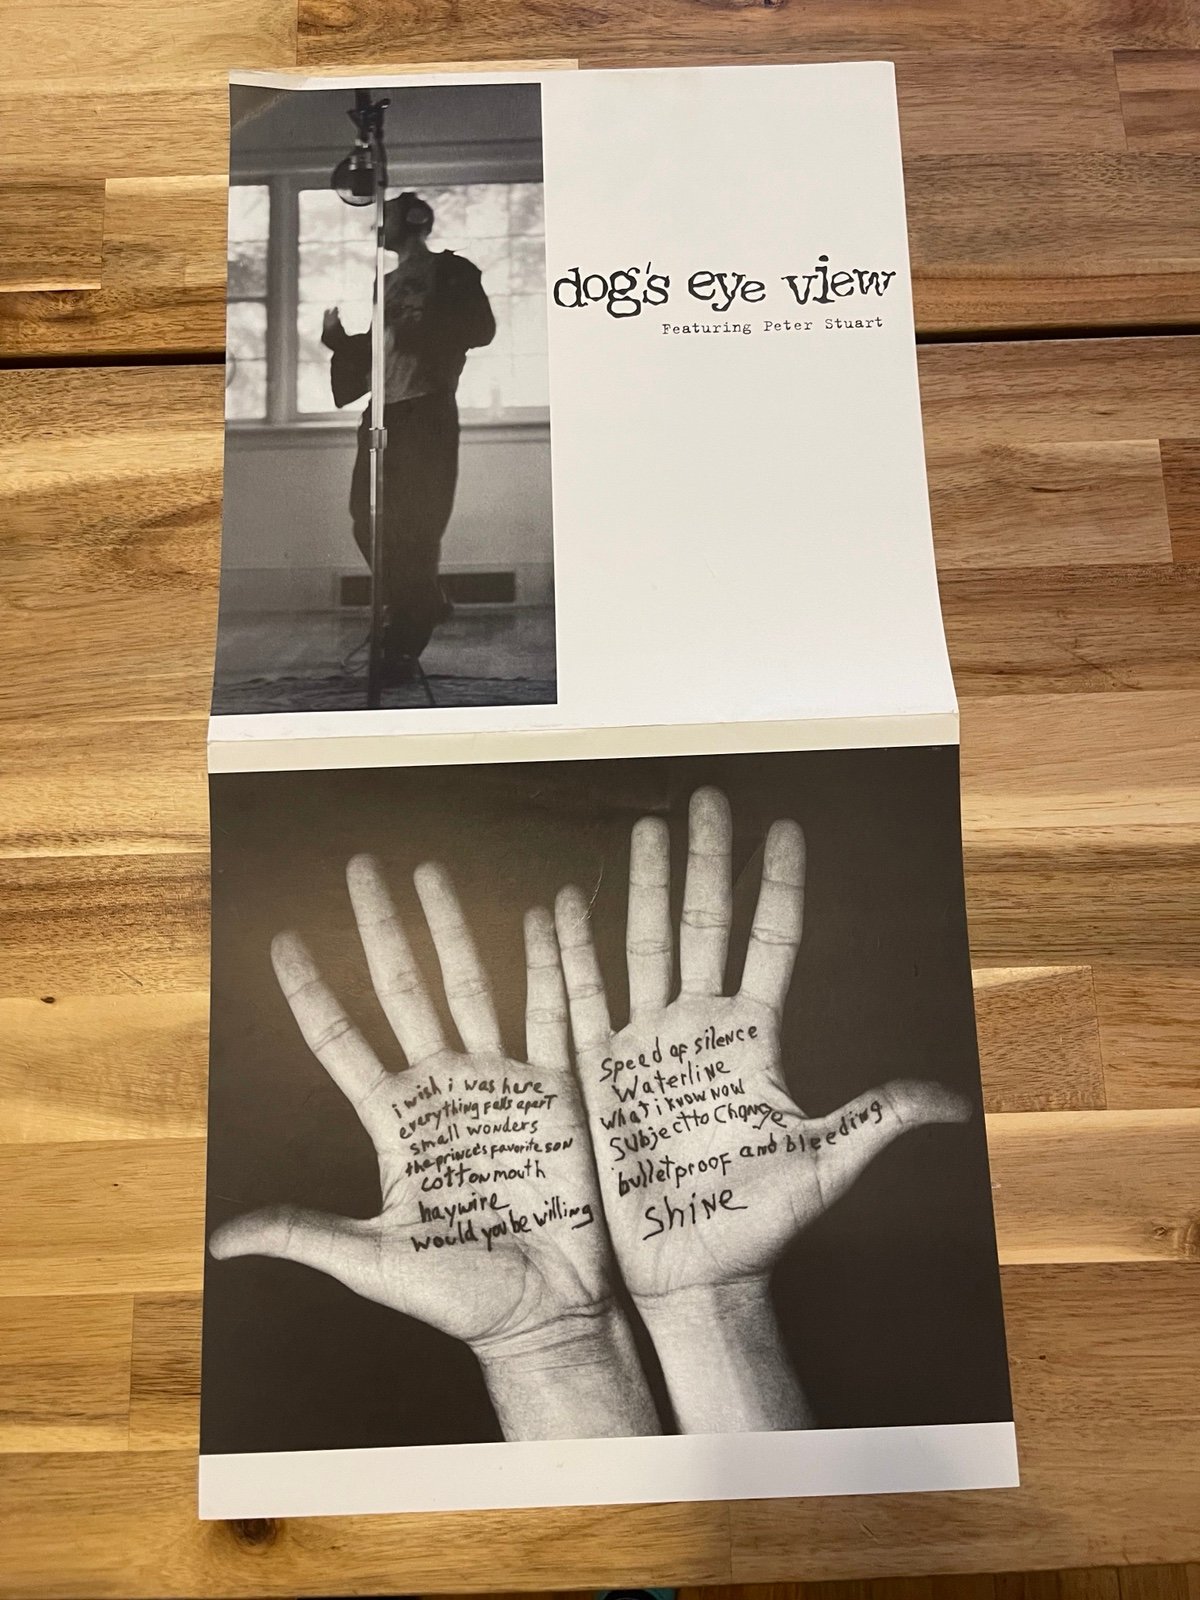 dog's eye view
Featuring Peter Stuart
i wish i was here
everything falls apart
small wonders
the prince's favorite son
cottonmouth
haywire
would you be willing
Speed of silence
Waterline
what i know now
Subject to Change
bulletproof and bleeding
Shine